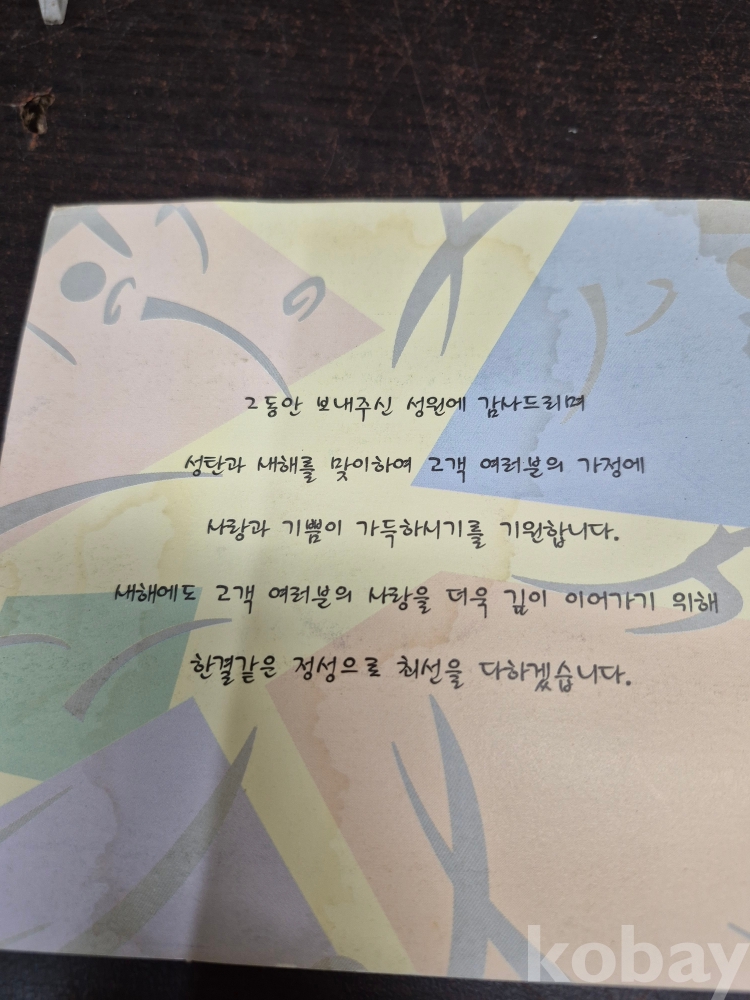 그동안 보내주신 성원에 감사드리며
성탄과 새해를 맞이하여 고객 여러분의 가정에
사랑과 기쁨이 가득하시기를 기원합니다.
새해에도 고객 여러분의 사랑을 더욱 깊이 이어가기 위해
한결같은 정성으로 최선을 다하겠습니다.
kobay